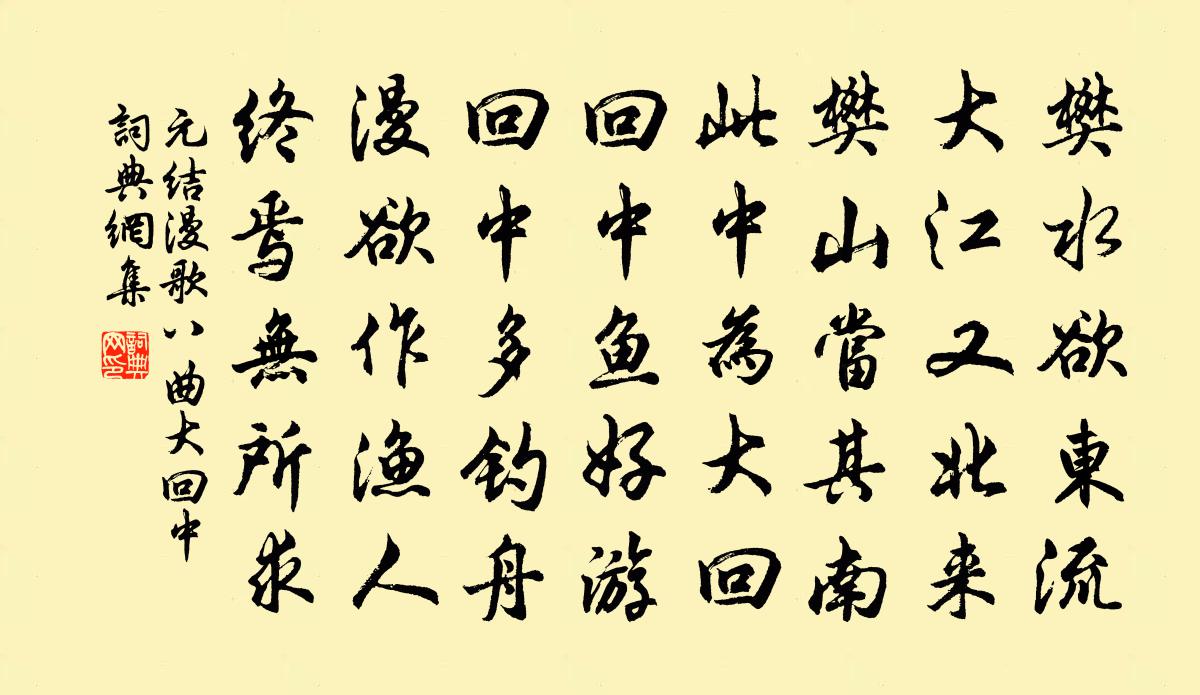 樊水欲東流
大江又北来
樊山當其南
此中為大回
回中鱼好游
回中多钓舟
漫欲作漁人
終焉無所求
元结漫歌八曲大回中
詞典網集
詞典网印